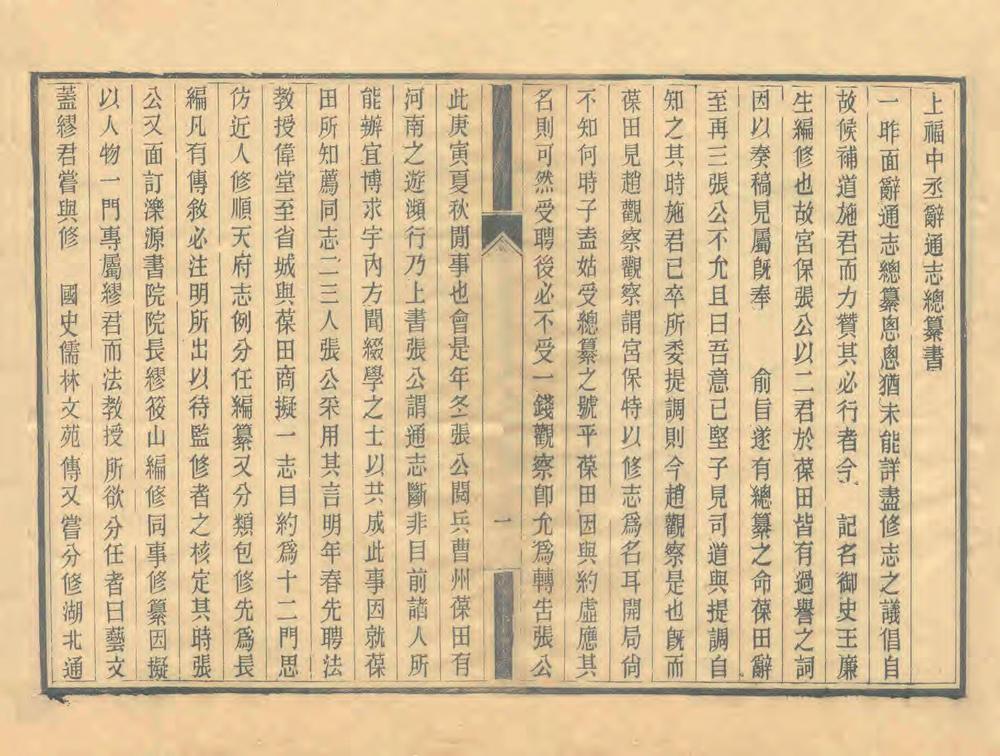 上福中丞辭通志總纂書
一昨面辭通志總纂悤悤猶未能詳盡修志之議倡自
故候補道施君而力贊其必行者今　記名御史王廉
生編修也故宮保張公以二君於葆田皆有過譽之詞
因以奏稿見屬旣奉　　俞旨遂有總纂之命葆田辭
至再三張公不允且曰吾意已堅子見司道與提調自
知之其時施君已卒所委提調則今趙觀察是也旣而
葆田見趙觀察觀察謂宮保特以修志爲名耳開局尙
不知何時子盍姑受總纂之號乎葆田因與約虛應其
名則可然受聘後必不受一錢觀察卽允爲轉吿張公
一
此庚寅夏秋閒事也會是年冬張公閱兵曹州葆田有
河南之遊瀕行乃上書張公謂通志斷非目前諸人所
能辦宜博求宇內方聞綴學之士以共成此事因就葆
田所知薦同志二三人張公采用其言明年春先聘法
教授偉堂至省城與葆田商擬一志目約爲十二門思
仿近人修順天府志例分任編纂又分類包修先爲長
編凡有傳敘必注明所出以待監修者之核定其時張
公又面訂濼源書院院長繆筱山編修同事修纂因擬
以人物一門專屬繆君而法教授所欲分任者曰藝文
蓋繆君嘗與修　國史儒林文苑傳又嘗分修湖北通